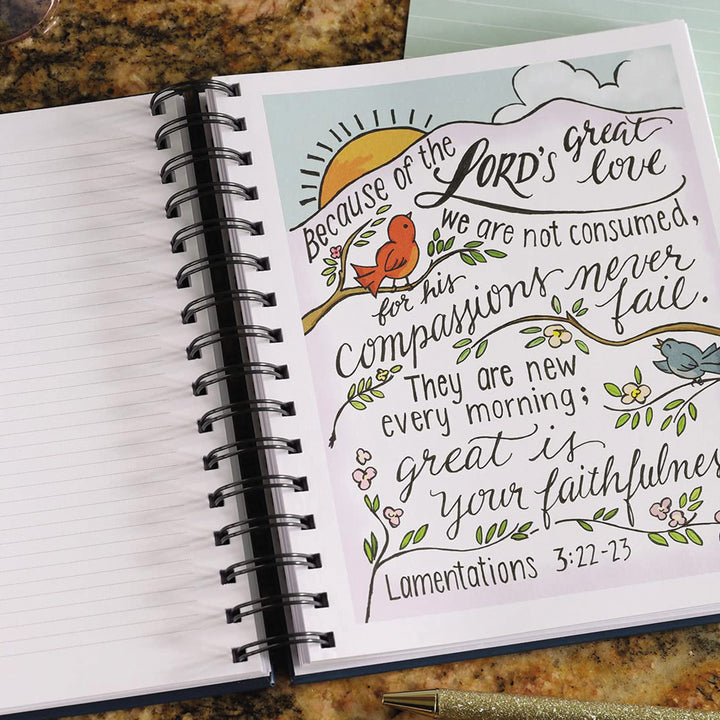 Because of the LORD'S great love
we are not consumed,
for his
compassions never
fail.
They are new
every morning;
great is
your faithfulness
Lamentations 3:22-23